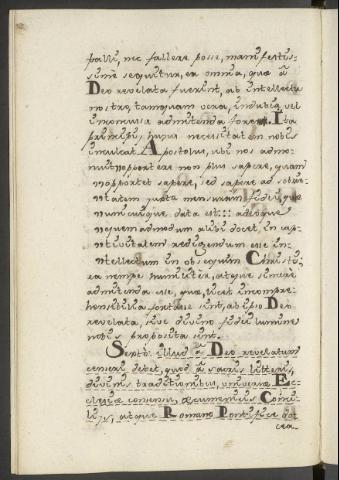 falli, nec fallere posse, manifestis-
sime sequitur, ea omnia, quæ à
Deo revelata fuerint, ab intellectu
nostro, tamquam vera, indubia, vel
inconcussa admittenda forent. Ita
hujus necessitatem nobis
inculcat Apostolus, ubi nos admo-
nuit non oportere non plus sapere, quam
oportet sapere, sed sapere ad sobrie-
tatem juxta mensuram fidei, quæ
unicuique data est: adeoque
quemadmodum alibi docet, in cap-
tivitatem redigendum esse in-
tellectum in obsequium Christi;
ea nempe humiliter, atque sincerè
admittenda esse, quæ, licet incompre-
hensibilia fortasse sint, ab ipso Deo
revelata, sive divino fidei lumine
nobis proposita sint.
Septo. illud à Deo revelatum
censeri debet, quod à sacris litteris,
divinis traditionibus, universæ Ec-
clesiæ consensu, œcumenicis Conci-
liis, atque Romano Pontifice dot
cea-